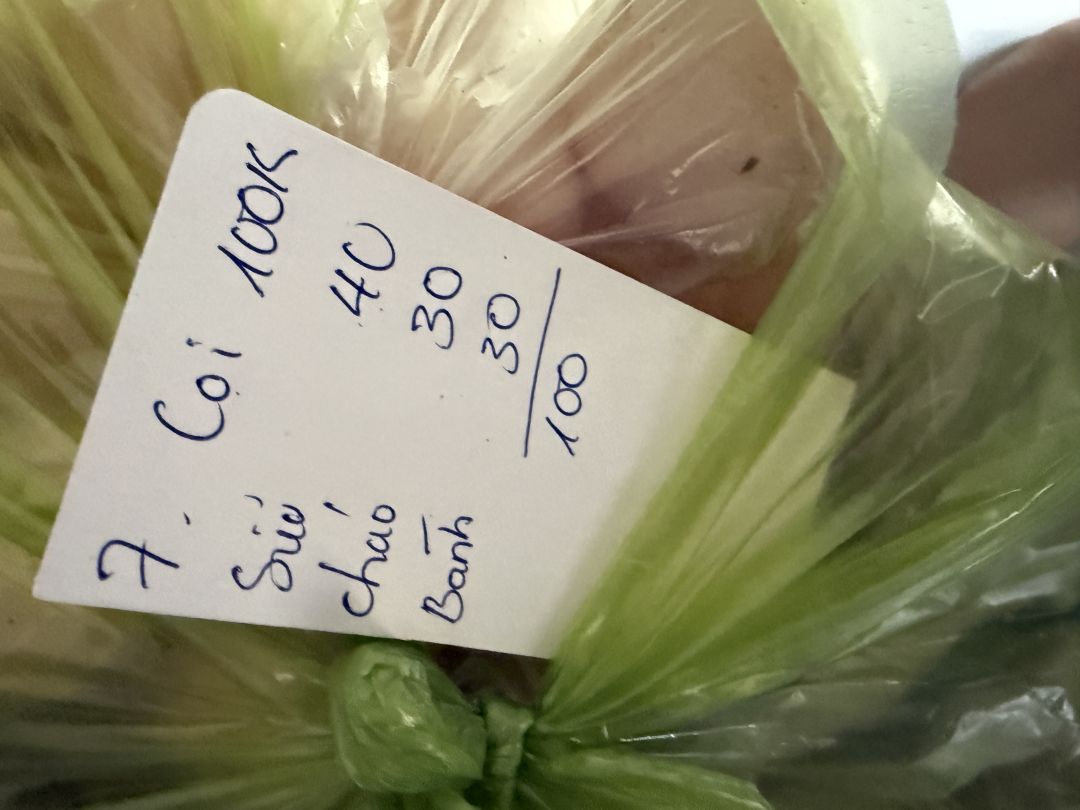 7. Còi 100K
Sứa 40
cháo 30
Bánh 30
100